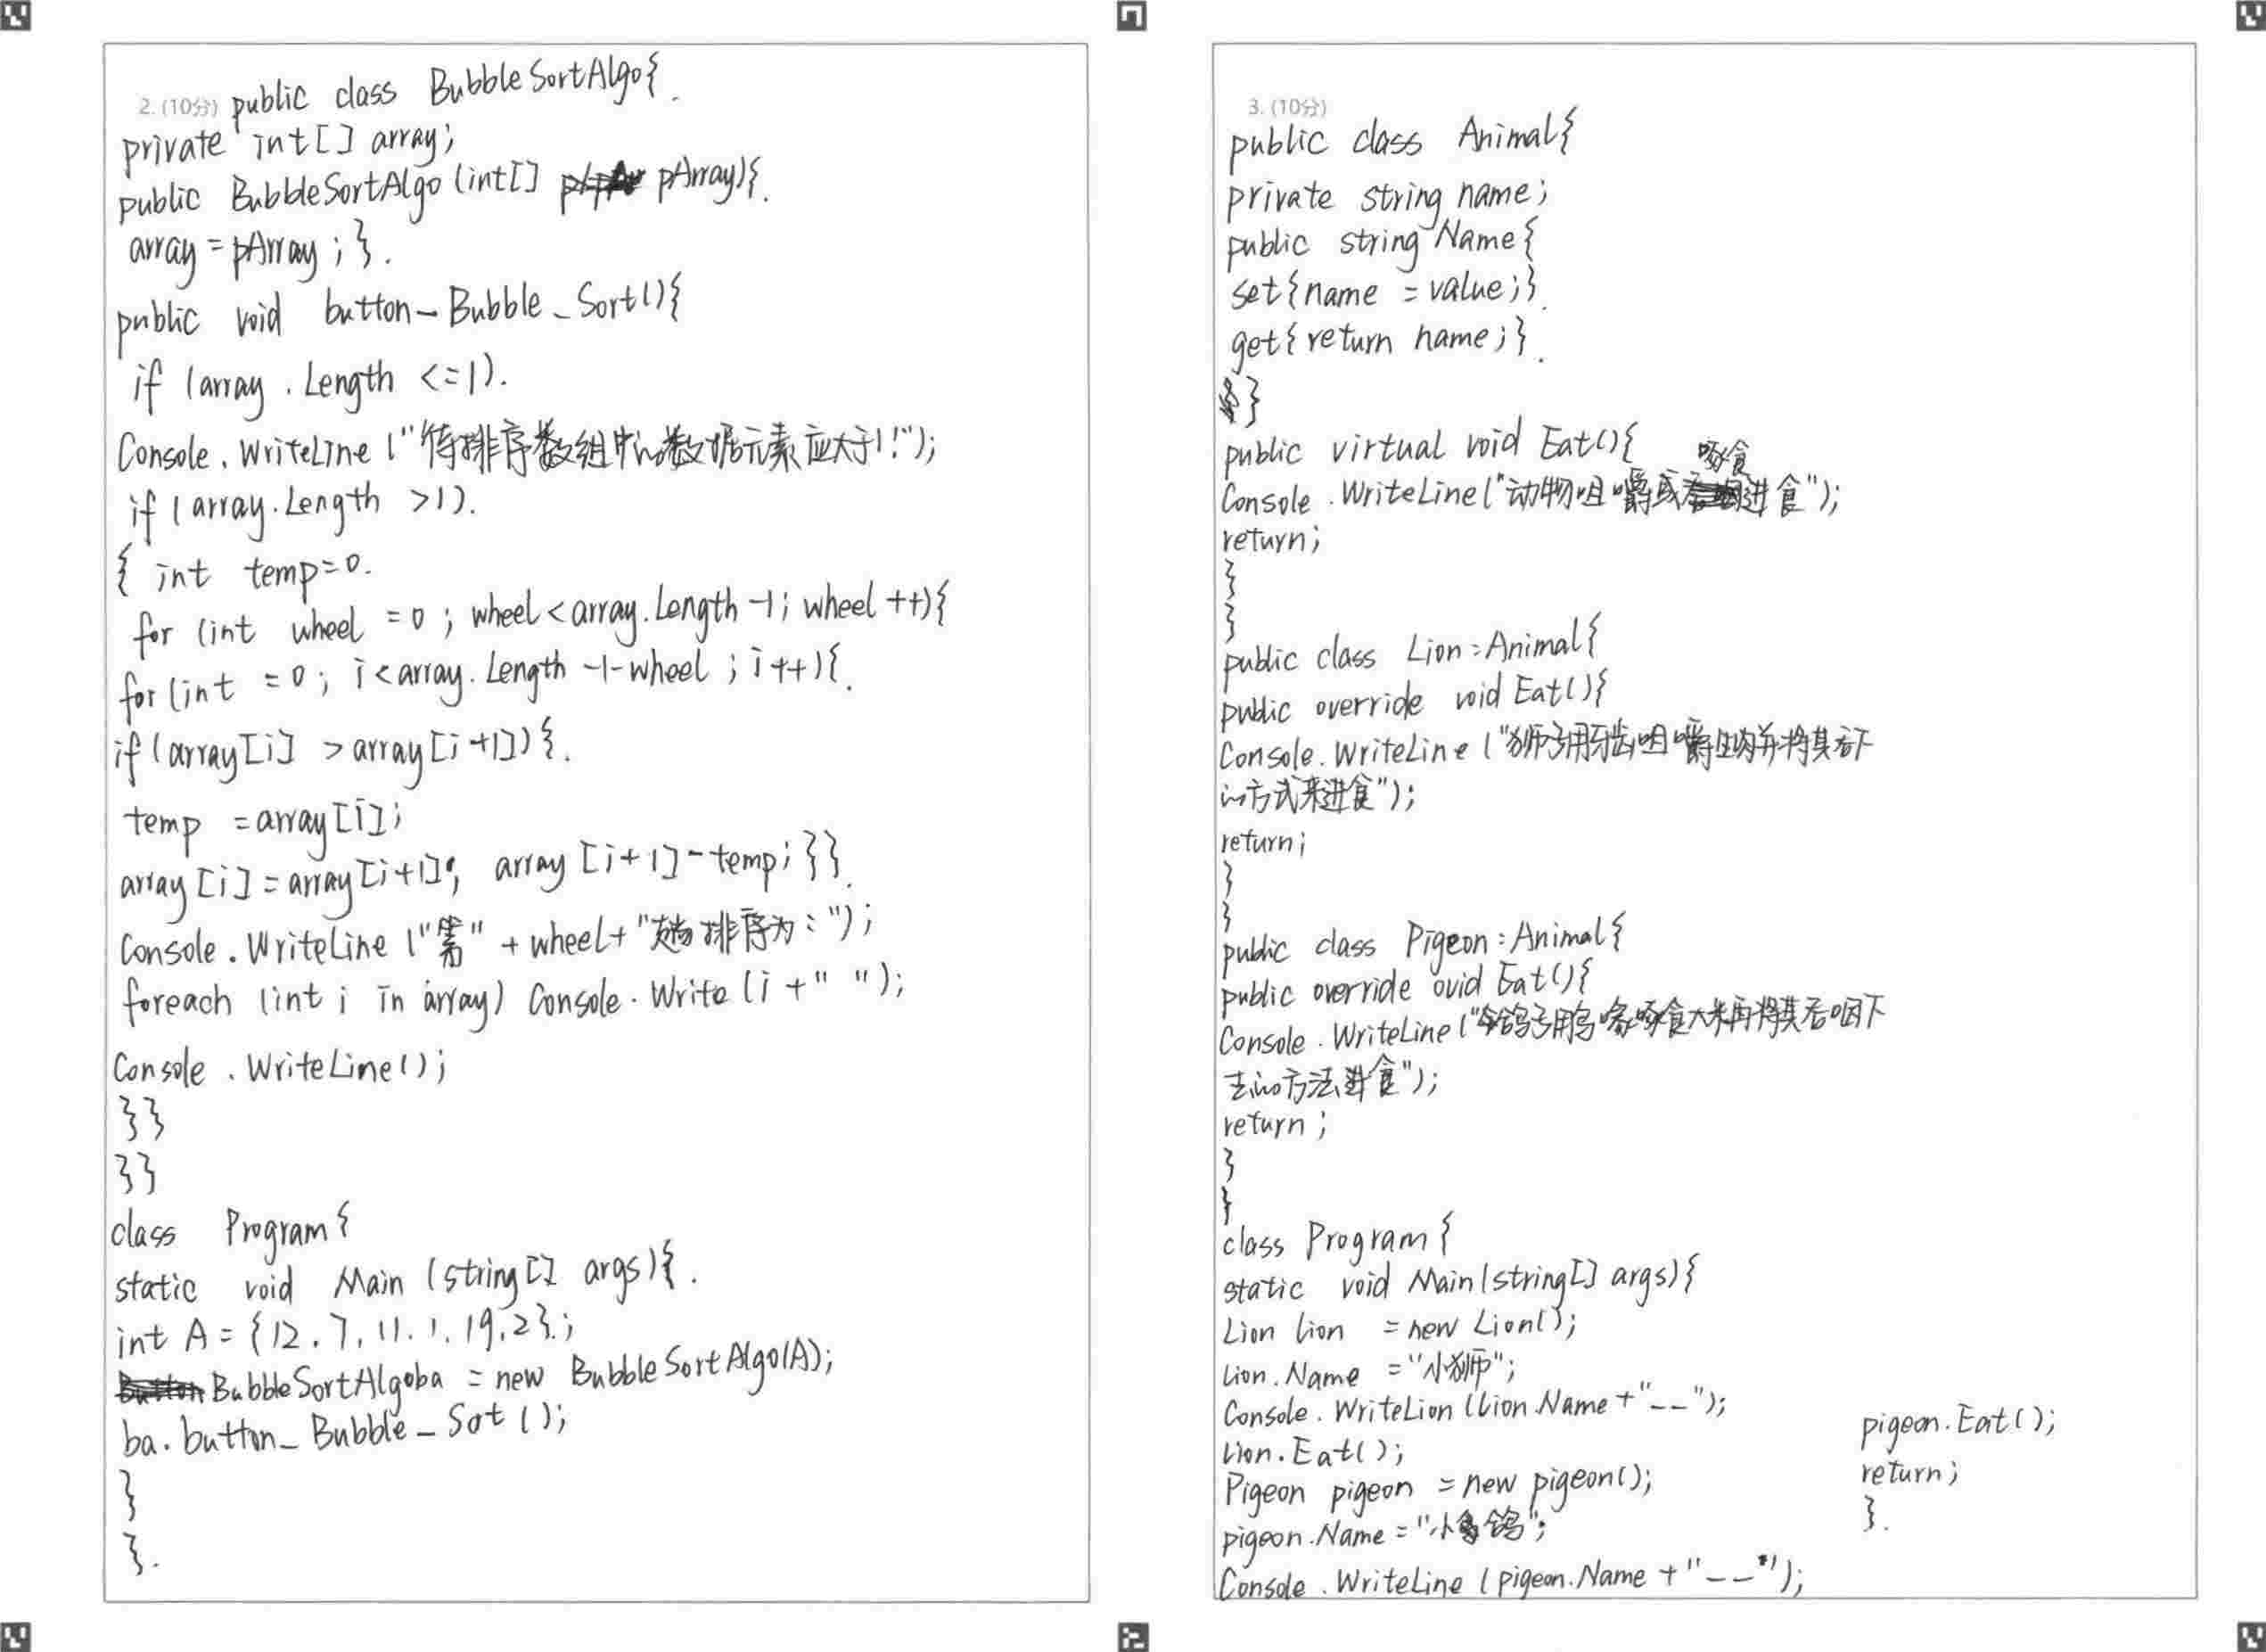 2. (10分) public class BubbleSortAlgo{.
private int[] array;
public BubbleSortAlgo (int[] pArray){.
array = pArray ; }.
public void button_Bubble_Sort(){
if (array . Length <=1).
Console . WriteLine ("待排序数组中的数据元素应大于1!");
if (array.Length >1).
{ int temp=0.
for (int wheel =0 ; wheel<array.Length-1; wheel ++){
for (int =0 ; i<array. Length -1-wheel ; i++){.
if (array[i] >array[i+1]) {.
temp =array[i];
array[i] =array[i+1]; array [i+1]-temp; }}.
Console . WriteLine (" " + wheel+ "趟排序为:");
foreach (int i in array) Console. Write (i +" ");
Console . WriteLine();
}}
}}
class Program{
static void Main (string[] args){.
int A = {12.7.11.1.19.2}.;
BubbleSortAlgoba = new BubbleSortAlgo(A);
ba.button_Bubble_Sot ();
}
}.
3. (10分)
public class Animal{
private string name;
public string Name{
set{name =value;}.
get{return name;}.
}
public virtual void Eat(){
Console .WriteLine("动物咀嚼或啄食进食");
return;
}
}
public class Lion:Animal{
public override void Eat(){
Console.WriteLine ("狮子用牙齿咀嚼生肉并将其吞下
的方式来进食");
return;
}
}
public class Pigeon:Animal{
public override ovid Eat(){
Console .WriteLine("鸽子用鸟喙啄食大米再将其吞咽下
去的方法进食");
return ;
}
}
class Program{
static void Main(string[] args){
Lion lion =new Lion();
lion.Name ="小狮";
Console. WriteLion (lion.Name+"__");
Lion.Eat();
Pigeon pigeon =new pigeon();
pigeon.Name="小鸽";
Console .WriteLine (pigeon.Name +"__");
pigeon.Eat();
return;
}.